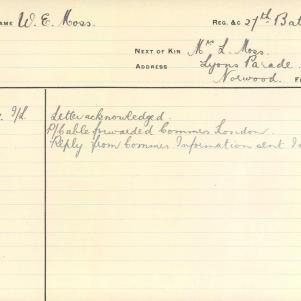 NAME W. E. Moss. REG. &C 27th Bat
NEXT OF KIN Mrs L. Moss.
ADDRESS Lyons Parade.
Norwood.
9/L Letter acknowledged.
P/Cable forwarded Commrs London.
Reply from Commrs Information sent